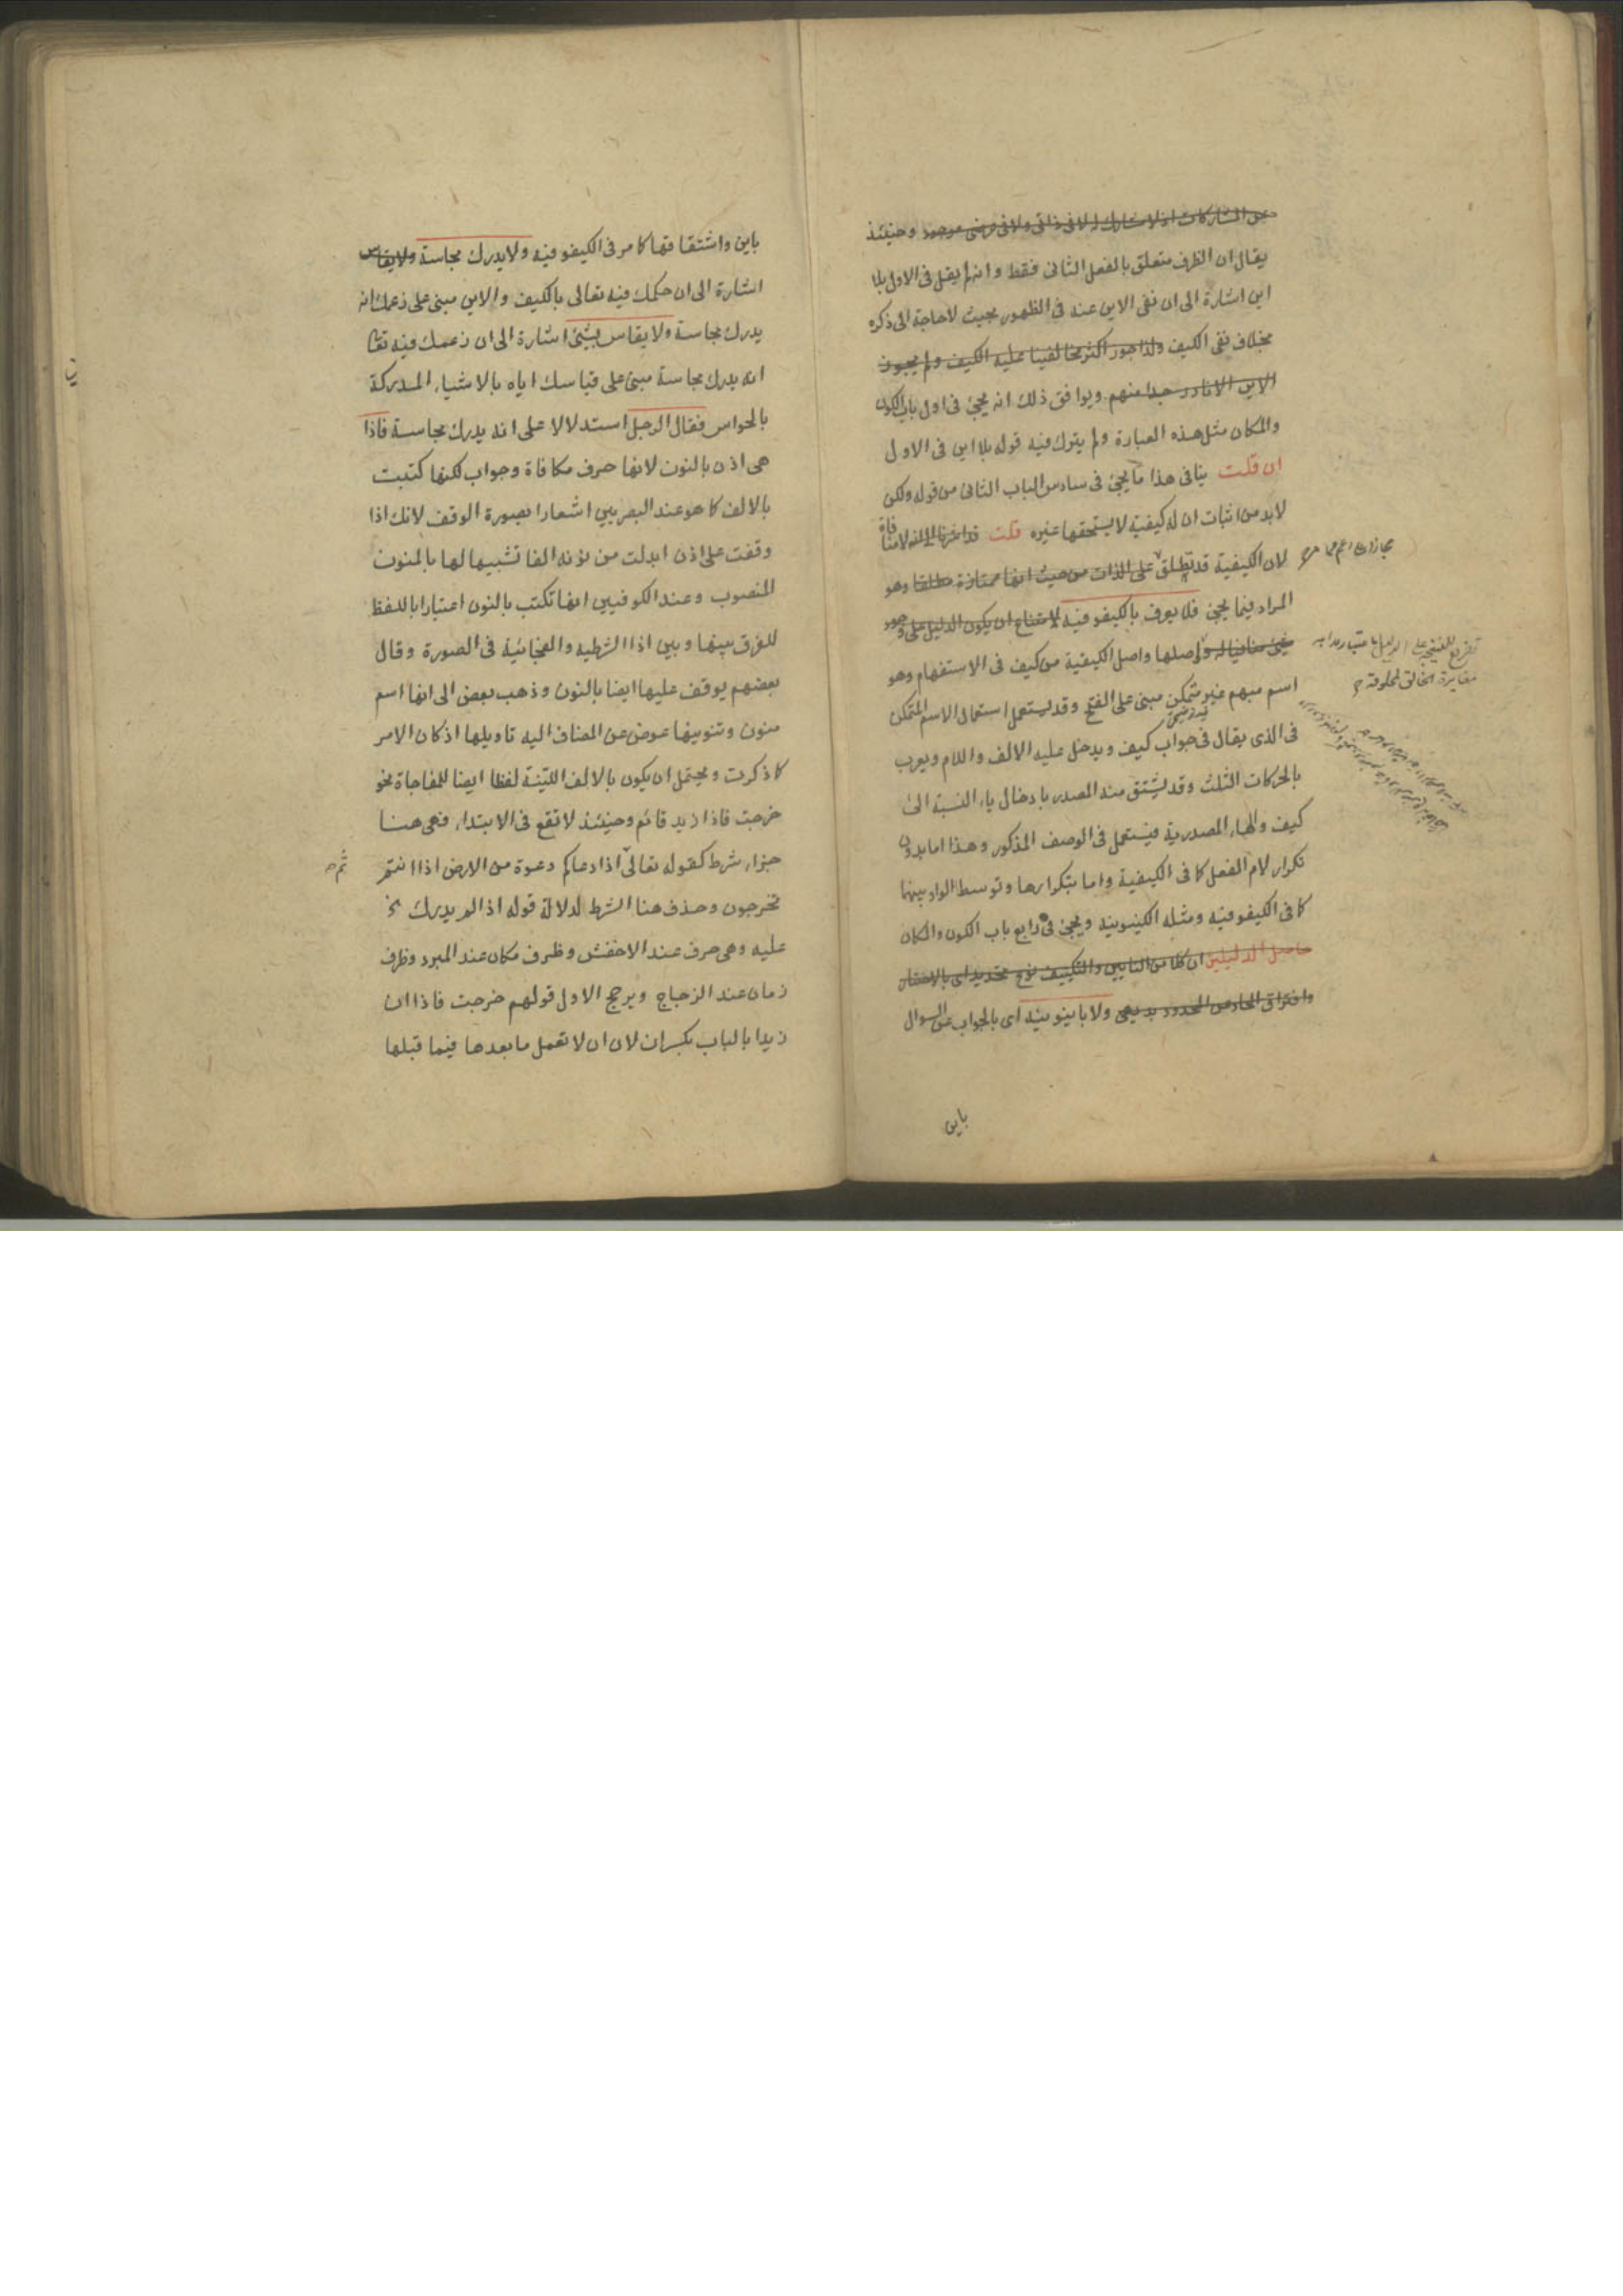 عن المشاركات اذ لا مشارك له لا فى ذاتى ولا فى عرضى موجود وحينئذ
يقال ان الظرف متعلق بالفعل الثانى فقط وانما لم يقل فى الاول بلا
اين اشارة الى ان نفى الاين عنه فى الظهور بحيث لا حاجة الى ذكره
بخلاف نفى الكيف ولذا جوز اكثر مخالفينا عليه الكيف ولم يجوزوا
الاين الا نادر جدا منهم ويوافق ذلك انه يجئ فى اول باب الكون
والمكان مثل هذه العبارة ولم يترك فيه قوله بلا اين فى الاول
ان قلت ينافى هذا ما يجئ فى سادس الباب الثانى من قوله ولكن
لابد من اثبات ان له كيفية لا يستحقها غيره قلت قد اشرنا الى انه لا منافاة
لان الكيفية قد تطلق على الذات من حيث انها ممتازة مطلقا وهو
المراد فيما يجئ فلا يعرف بالكيفوفية لامتناع ان يكون الدليل على وجود
شئ منافيا له واصلها واصل الكيفية من كيف فى الاستفهام وهو
اسم مبهم غير متمكن مبنى على الفتح وقد يستعمل استعمال الاسم المتمكن
فى الذى يقال فى جواب كيف ويدخل عليه الالف واللام ويعرب
بالحركات الثلث وقد يشتق منه المصدر بادخال ياء النسبة الى
كيف والهاء المصدرية فيستعمل فى الوصف المذكور وهذا اما بدون
تكرار لام الفعل كما فى الكيفية واما بتكرارها وتوسط الواو بينهما
كما فى الكيفوفية ومثله الكينونية ويجئ فى رابع باب الكون والمكان
حاصل الدليلين ان كلا من التايين والتكييف نوع تحديد اى بالاحتفاء
وافتراق الحاد عن المحدود بديهى ولا باينونية اى بالجواب عن السوال
باين
مجازا
تفريع للنتيجة على الدليل باعتبار
مغايرة الخالق لمخلوقه
باين واشتقاقها كما مر فى الكيفوفية ولا يدرك بحاسة ولا يقاس
اشارة الى ان حكمك فيه تعالى بالكيف والاين مبنى على زعمك انه
يدرك بحاسة ولا يقاس بشئ اشارة الى ان زعمك فيه تعا
انه يدرك بحاسة مبنى على قياسك اياه بالاشياء المدركة
بالحواس فقال الرجل استدلالا على انه يدرك بحاسة فاذا
هى اذن بالنون لانها حرف مكافاة وجواب لكنها كتبت
بالالف كما هو عند البصريين اشعارا بصورة الوقف لانك اذا
وقفت على اذن ابدلت من نونه الفا تشبيها لها بالمنون
المنصوب وعند الكوفيين انها تكتب بالنون اعتبارا باللفظ
للفرق بينها وبين اذا الشرطية والفجائية فى الصورة وقال
بعضهم يوقف عليها ايضا بالنون وذهب بعض الى انها اسم
منون وتنوينها عوض عن المضاف اليه تاويلها اذ كان الامر
كما ذكرت ويحتمل ان يكون بالالف اللينة لفظا ايضا للمفاجاة نحو
خرجت فاذا زيد قائم وحينئذ لا تقع فى الابتداء فهى هنا
جزاء شرط كقوله تعالى اذا دعاكم دعوة من الارض اذا انتم
ثم
تخرجون وحذف هنا الشرط لدلالة قوله اذا لم يدرك الخ
عليه وهى حرف عند الاخفش وظرف مكان عند المبرد وظرف
زمان عند الزجاج ويرجح الاول قولهم خرجت فاذا ان
زيدا بالباب بكسر ان لان ان لا تعمل ما بعدها فيما قبلها